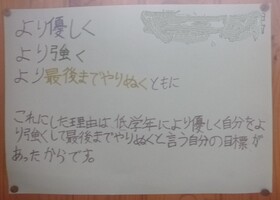 より優しく
より強く
より最後までやりぬくともに
これにした理由は低学年により優しく自分をよ
り強くして最後までやりぬくと言う自分の目標が
あったからです。